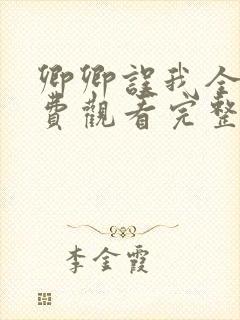 卿卿誤我全
費觀看完整
李金霞